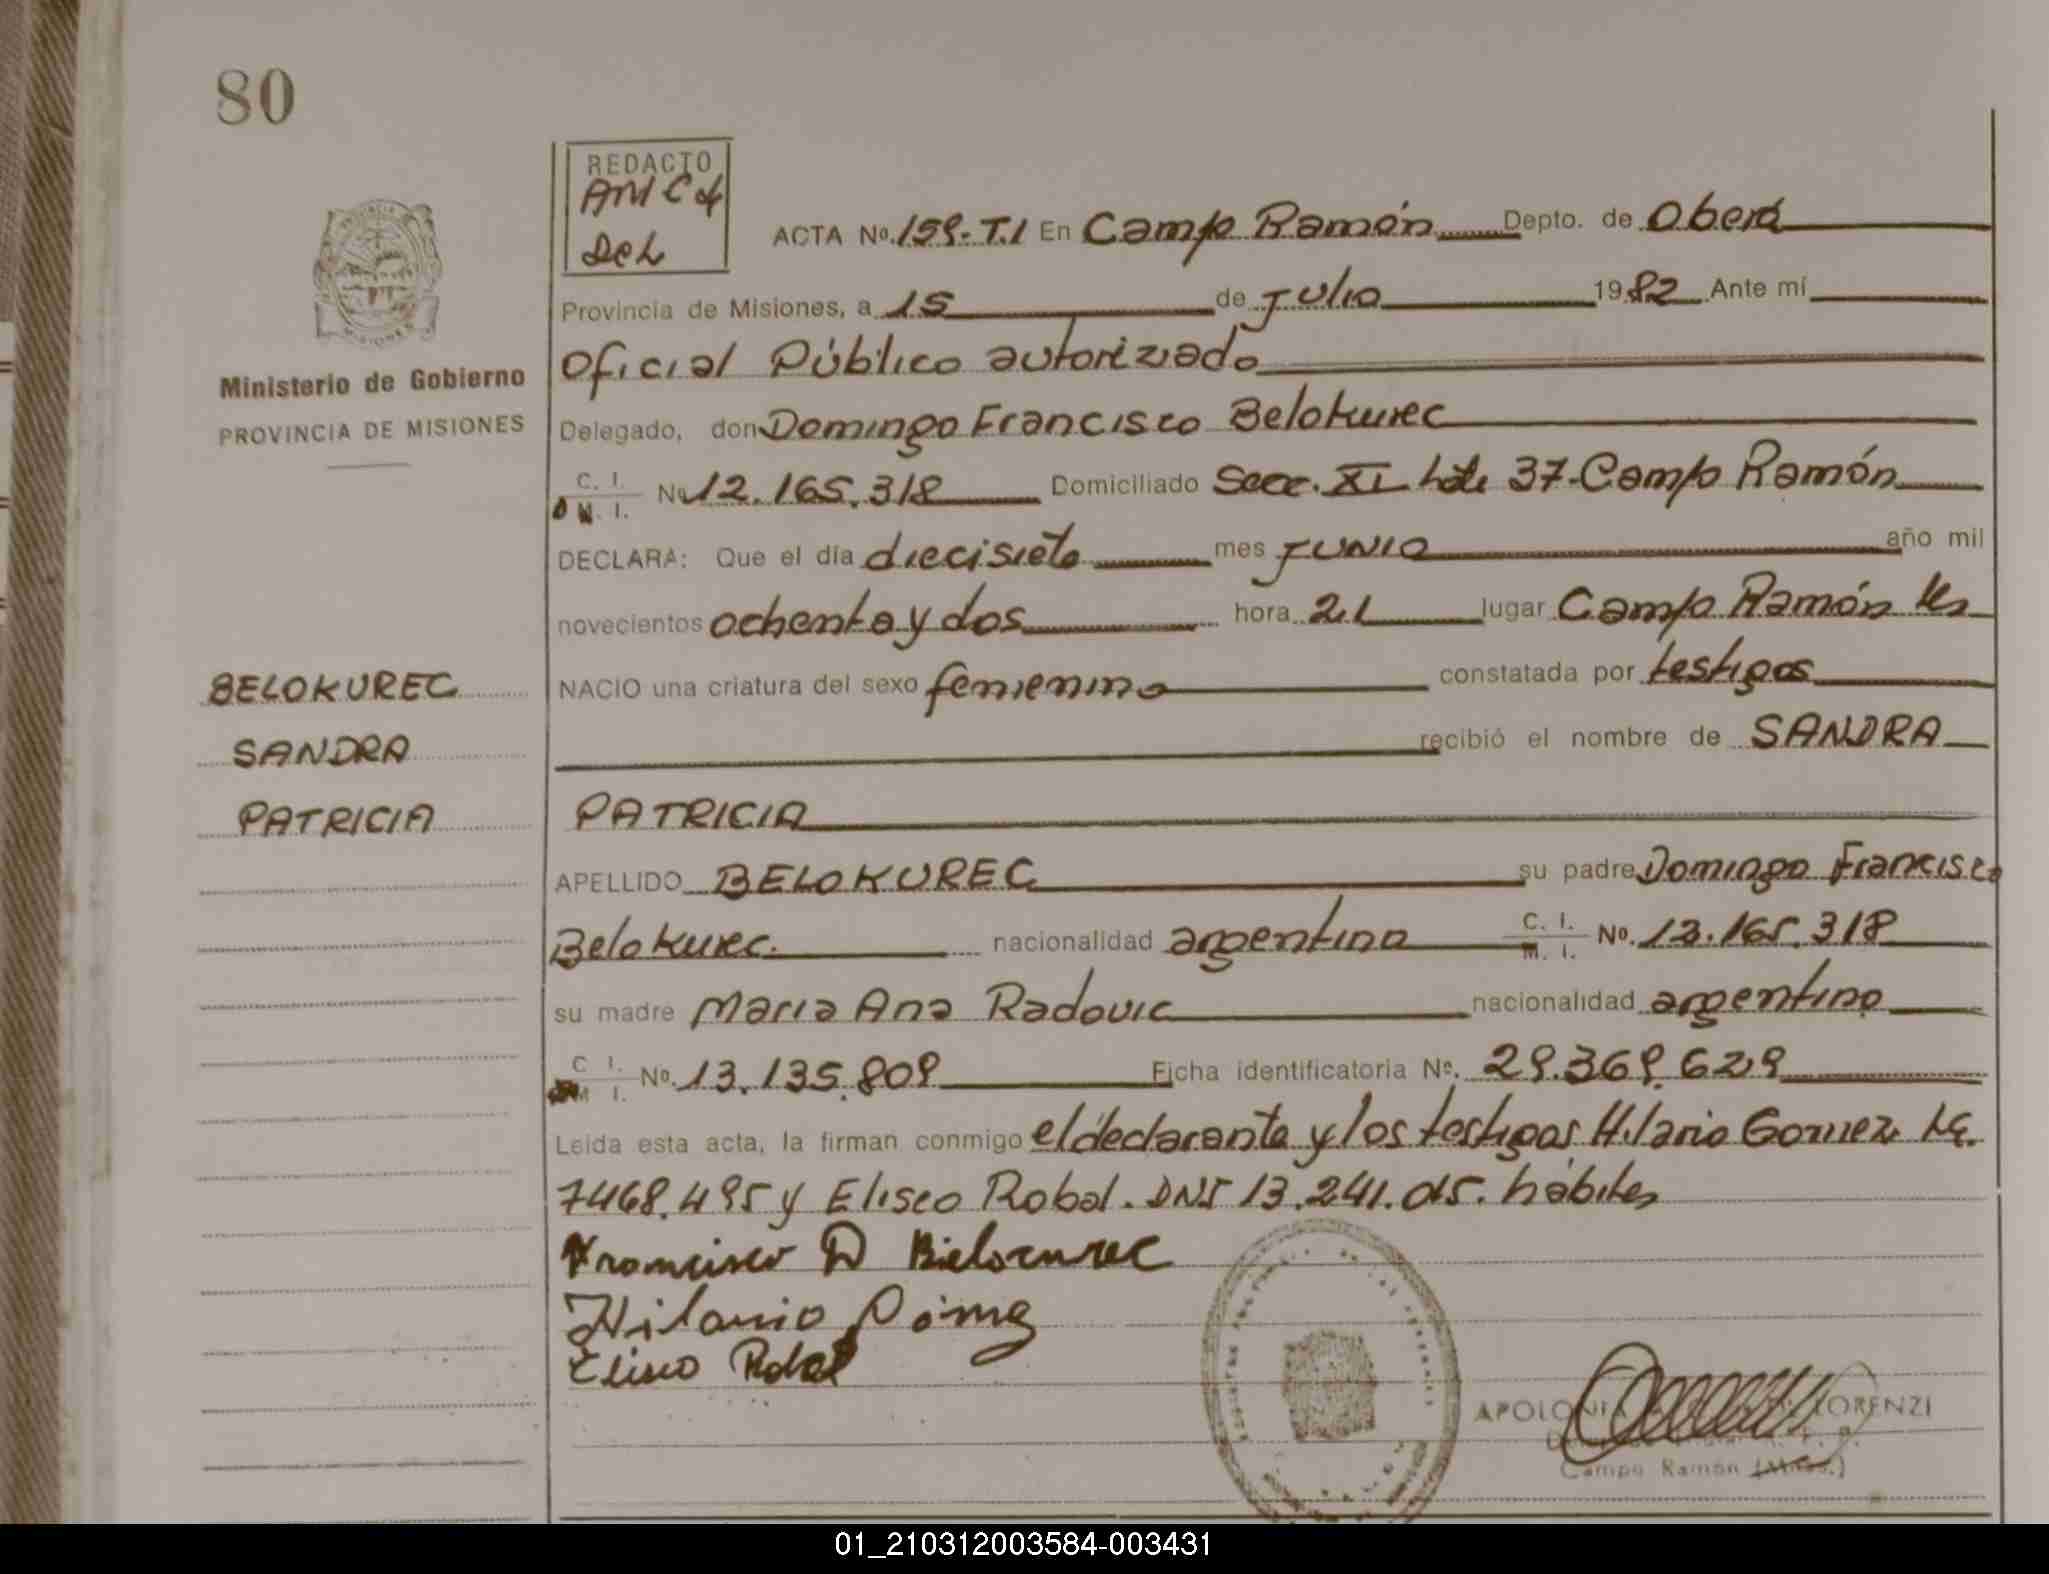 80
REDACTO
ACTA No. 159-T.I En Campo Ramón Depto. de Oberá
Provincia de Misiones, a 15 de Julio 1982 Ante mí
Oficial Público autorizado
Ministerio de Gobierno
PROVINCIA DE MISIONES
Delegado, don Domingo Francisco Belokurec
C. I.
M. I. No 12.165.318 Domiciliado Secc. XI Lote 37-Campo Ramón
DECLARA: Que el día diecisiete mes JUNIO año mil
novecientos ochenta y dos hora 21 lugar Campo Ramón
BELOKUREC
NACIO una criatura del sexo femienino constatada por testigos
SANDRA
recibió el nombre de SANDRA
PATRICIA
PATRICIA
APELLIDO BELOKUREC su padre Domingo Francisco
Belokurec. nacionalidad argentina C. I.
M. I. No. 12.165.318
su madre Maria Ana Radovic nacionalidad argentina
C. I.
M. I. No. 13.135.809 Ficha identificatoria No. 29.369.629
Leida esta acta, la firman conmigo el declarante y los testigos Hilario Gomez LE.
7468.495 y Eliseo Robal. DNI 13.241.015. hábiles
Francisco D Bielocurec
Hilario Gómez
Eliseo Robal
APOLONIA LORENZI
Campo Ramón (Mnes.)
01_210312003584-003431